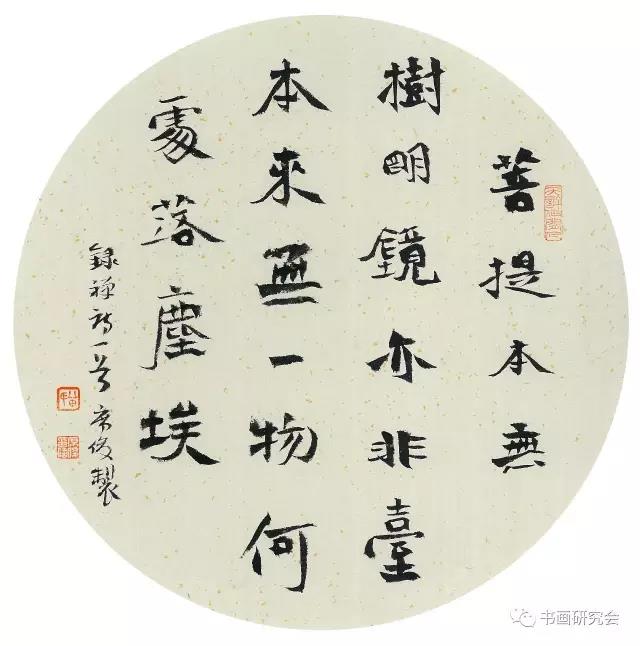 菩提本無
樹明鏡亦非臺
本來無一物何
處落塵埃
錄禅詩一首
製
书画研究会